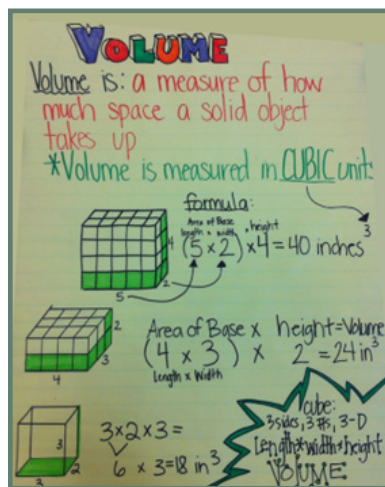 VOLUME
Volume is: a measure of how
much space a solid object
takes up
*Volume is measured in CUBIC units
formula:
Area of Base
length x width x height
(5 x 2) x 4 = 40 inches 3
4
2
5
Area of Base x height = Volume
(4 x 3) x 2 = 24 in3
length x width
2
3
4
3x2x3=
6 x 3=18 in3
3
2
3
cube:
3 sides, 3 #s, 3-D
length*width*height
VOLUME